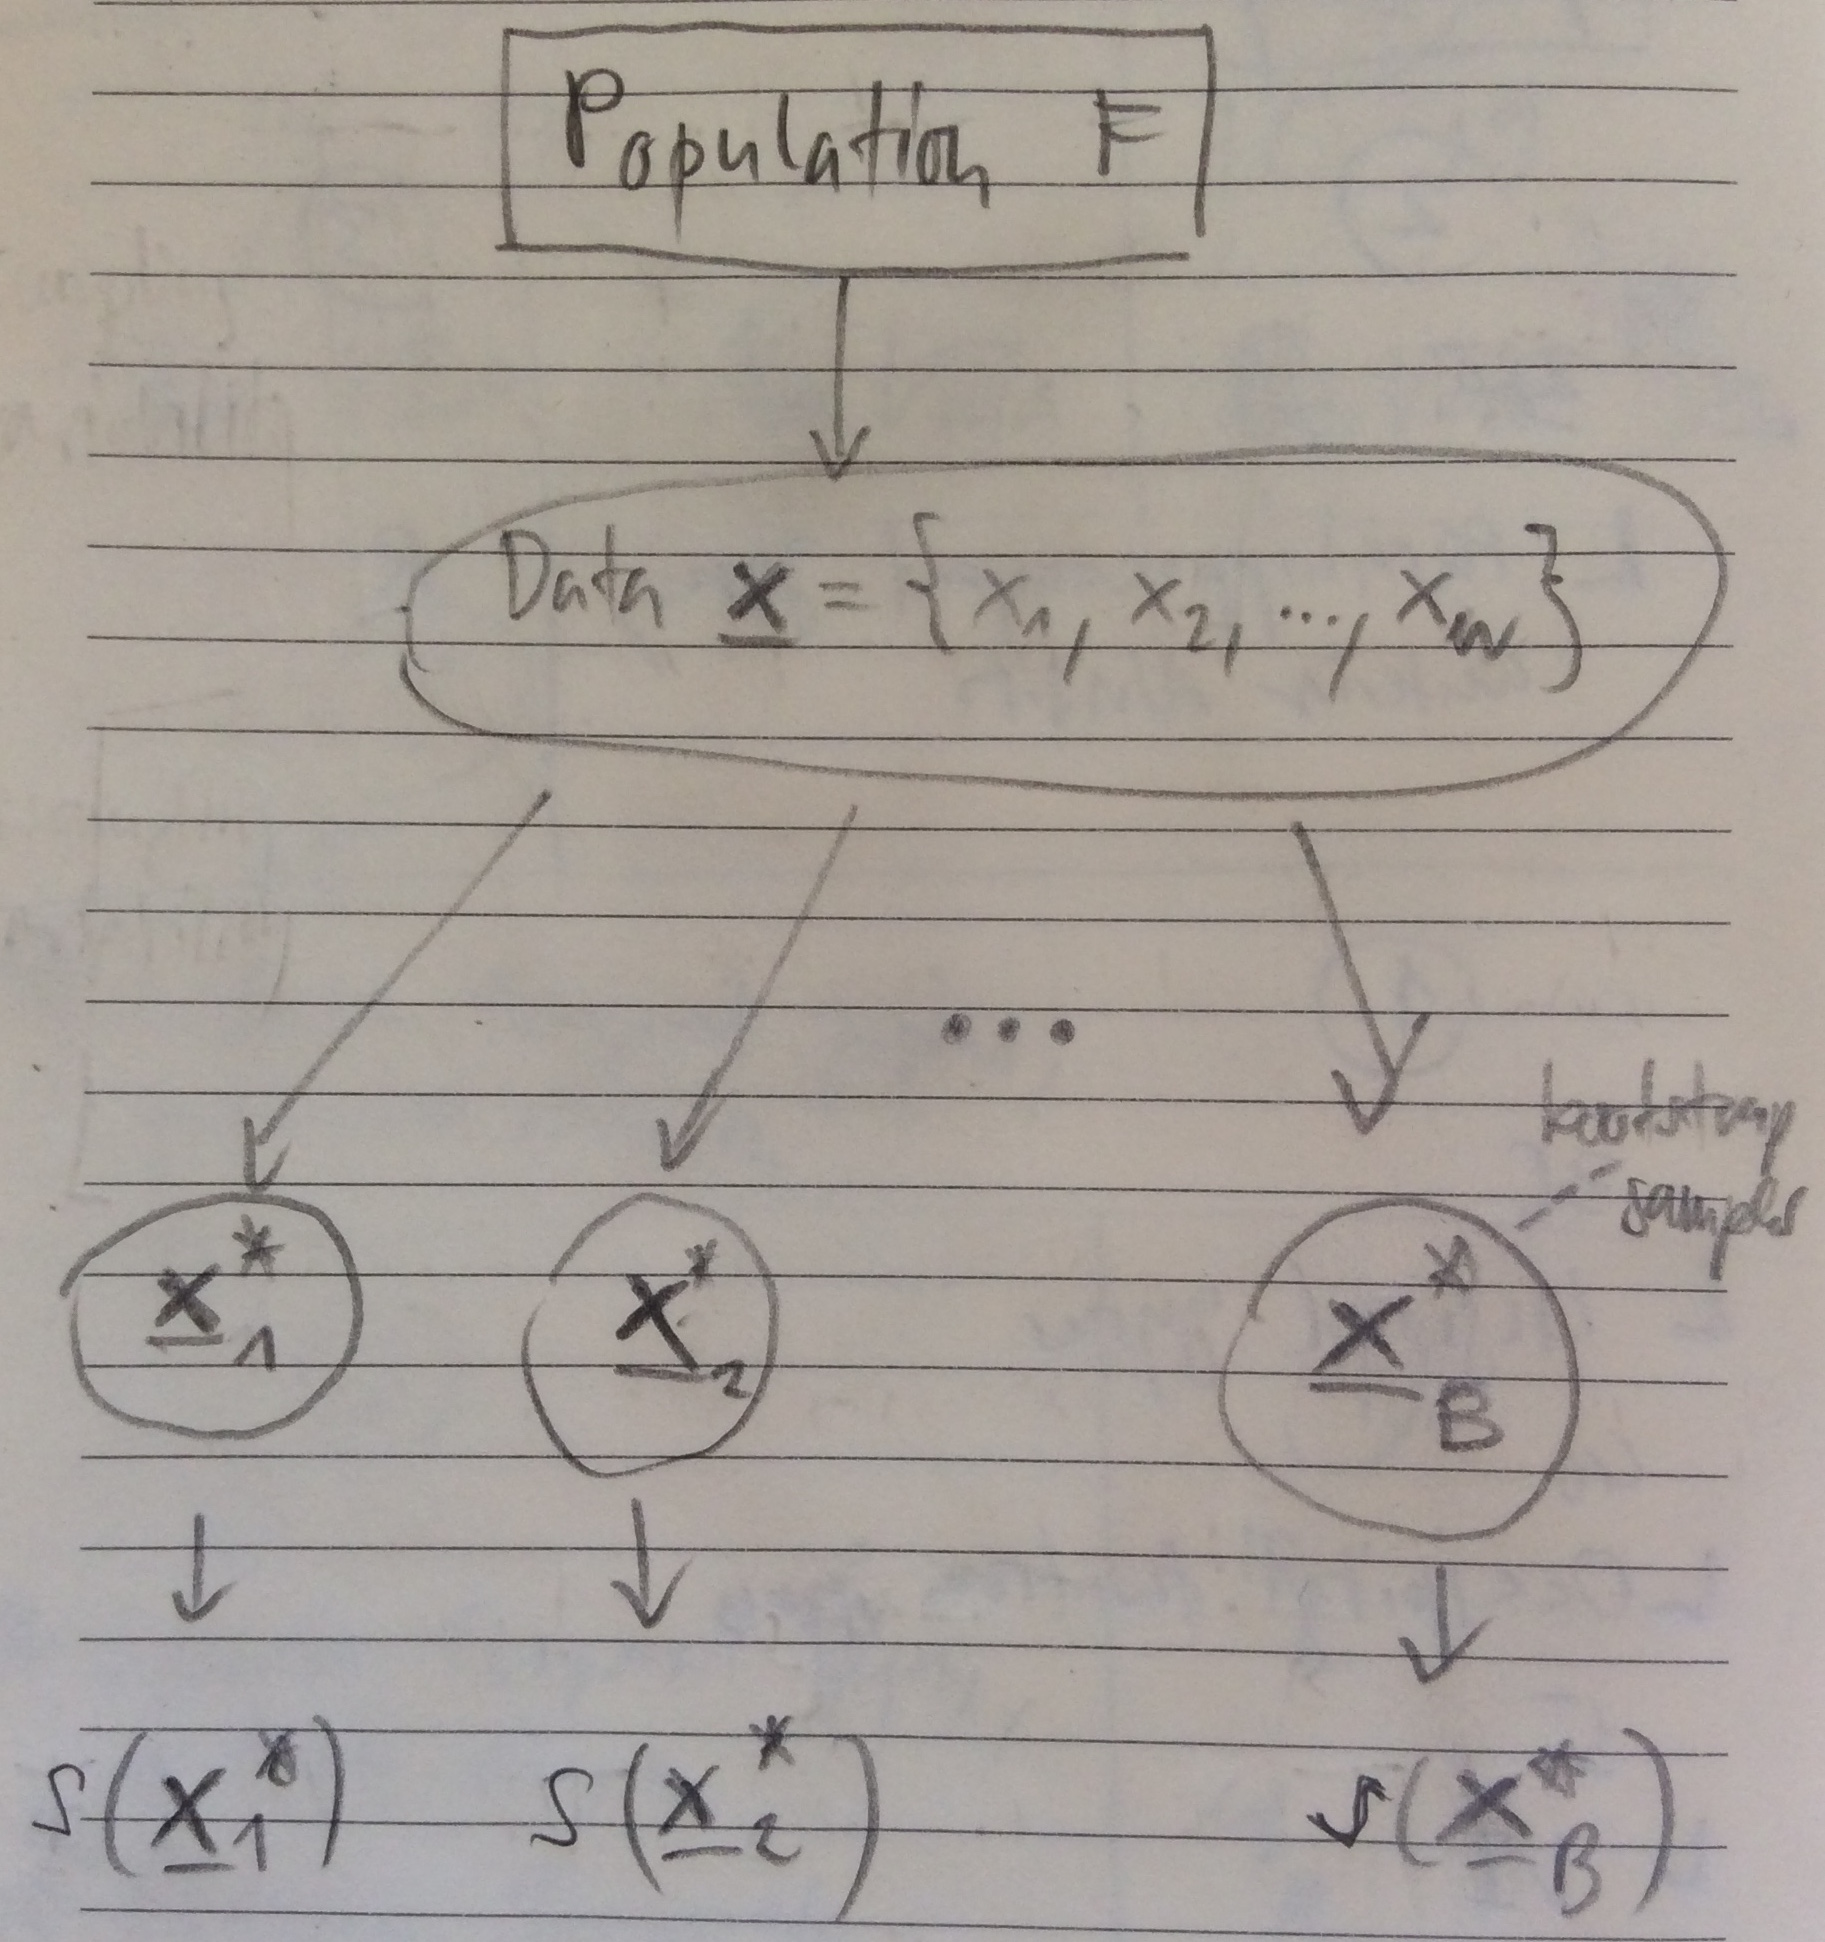 Population F
Data x = {x1, x2, ..., xm}
...
bootstrap
samples
x*1 x*2 x*B
S(x*1) S(x*2) S(x*B)